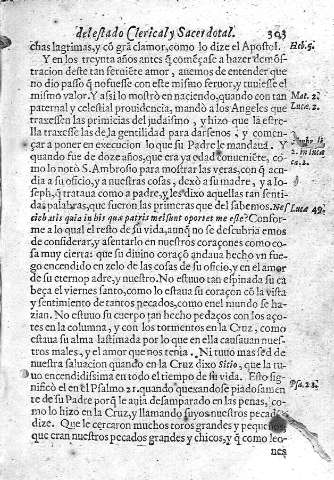 del estado Clerical y Sacerdotal. 393
chas lagrimas, y cõ grã clamor, como lo dize el Apostol. Heb. 5.
Y en los treynta años antes q̃ começase a hazer demõs-
tracion deste tan feruiẽte amor, auemos de entender que
no dio passo q̃ no fuesse con este mismo feruor, y tuuiesse el
mismo valor. Y assi lo mostrò en naciendo, quando con tan Mat. 2.
paternal y celestial prouidencia, mandò a los Angeles que Lucæ. 2.
traxessen las primicias del judaismo, y hizo que la estre-
lla traxesse las de la gentilidad para darsenos, y comen-
çar a poner en execucion lo que su Padre le mandaua. Y
quando fue de doze años, que era ya edad conueniẽte, co-
mo lo notò S. Ambrosio para mostrar las veras, con q̃ acu-
dia a su oficio, y a nuestras cosas, dexò a su madre, y a Io-
seph, q̃ trataua como a padre, y les dixo aquellas tan senti-
das palabras, que fueron las primeras que del sabemos. Nes Lucæ
ciebatis quia in his quæ patris mei sunt oportet me esse? Confor-
me a lo qual el resto de su vida, aunq̃ no se descubria emos
de considerar, y asentarlo en nuestros coraçones como co-
sa muy cierta: que su diuino coraçõ andaua hecho vn fue-
go encendido en zelo de las cosas de su oficio, y en el amor
de su eterno padre, y nuestro. No estuuo tan espinada su ca
beça el viernes santo, como lo estaua su coraçon cõ la vista
y sentimiento de tantos pecados, como en el mundo se ha-
zian. No estuuo su cuerpo tan hecho pedaços con los aço-
tes en la columna, y con los tormentos en la Cruz, como
estaua su alma lastimada por lo que en ella causauan nues-
tros males, y el amor que nos tenia. Ni tuuo mas sed de
nuestra saluacion quando en la Cruz dixo Sitio, que la tu-
uo encendidissima en todo el tiempo de su vida. Esto sig-
nificò el en el Psalmo 21. quando quexandose piadosamen Psa.
te de su Padre porq̃ le auia desamparado en las penas,
como lo hizo en la Cruz, y llamando suyos nuestros pecados
dize. Que le cercaron muchos toros grandes y pequeños
que eran nuestros pecados grandes y chicos, y q̃ como leo-
nes